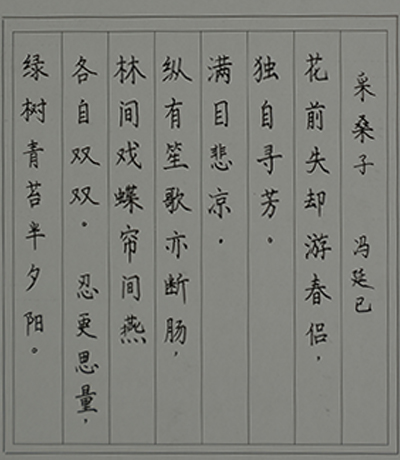 采桑子 冯延己
花前失却游春侣，
独自寻芳。
满目悲凉。
纵有笙歌亦断肠，
林间戏蝶帘间燕
各自双双。 忍更思量，
绿树青苔半夕阳。